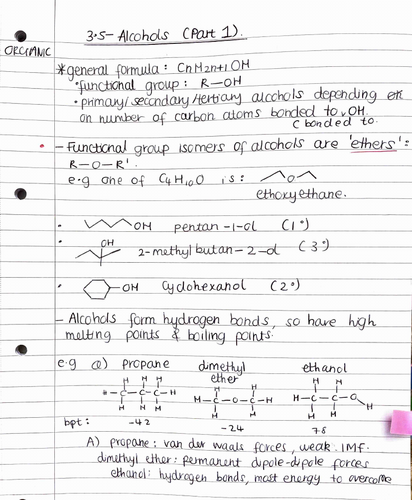 3.5 - Alcohols (Part 1).
ORGANIC
* general formula : CnH2n+1 OH
• functional group : R-OH
• primary/secondary/tertiary alcohols depending
on number of carbon atoms bonded to OH.
C bonded to.
- Functional group isomers of alcohols are 'ethers':
R-O-R'.
e.g one of C4H10O is: O
ethoxyethane.
• OH pentan-1-ol (1°)
• OH 2-methylbutan-2-ol (3°)
• OH Cyclohexanol (2°)
- Alcohols form hydrogen bonds, so have high
melting points & boiling points.
e.g Q) propane dimethyl ether ethanol
H H H
H-C-C-C-H
H H H
H H
H-C-O-C-H
H H
H H
H-C-C-O
H H H
bpt: -42 -24 78
A) propane: van der waals forces, weak IMF.
dimethyl ether: permanent dipole-dipole forces
ethanol: hydrogen bonds, most energy to overcome